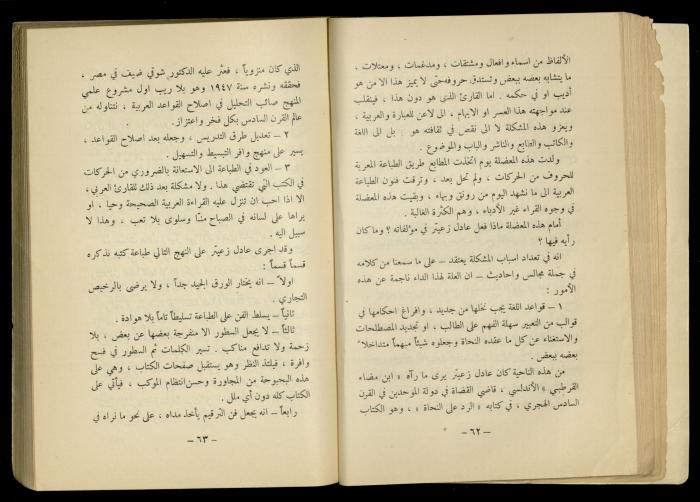 الألفاظ من اسماء وافعال ومشتقات ، ومدغمات ، ومعتلات ،
ما يتشابه بعضه ببعض وتستدق حروفه حتى لا يميز هذا الا من هو
أديب او في حكمه . اما القارئ الذي هو دون هذا ، فينقلب
عند مواجهته هذا العسر او الابهام ، الى لاعن للعبارة والعربية ،
ويعزو هذه المشكلة لا الى نقص في ثقافته هو : بل الى اللغة
والكاتب والطابع والناشر والباب والموضوع .
ولدت هذه المعضلة يوم اتخذت المطابع طريق الطباعة المعربة
للحروف من الحركات ، ولم تحل بعد ، وترقت فنون الطباعة
العربية الى ما نشهد اليوم من رونق وبهاء ، وبقيت هذه المعضلة
في وجوه القراء غير الأدباء ، وهم الكثرة الغالبة .
أمام هذه المعضلة ماذا فعل عادل زعيتر في مؤلفاته ؟ وما كان
رأيه فيها ؟
انه في تعداد اسباب المشكلة يعتقد – على ما سمعنا من كلامه
في جملة مجالس واحاديث – ان العلة لهذا الداء ناجمة عن هذه
الأمور :
١ – قواعد اللغة يجب نخلها من جديد ، وافراغ احكامها في
قوالب من التعبير سهلة الفهم على الطالب ، او تجديد المصطلحات
والاستغناء عن كل ما عقده النحاة وجعلوه شيئاً مبهماً متداخلاً
بعضه ببعض .
من هذه الناحية كان عادل زعيتر يرى ما رآه « ابن مضاء
القرطبي » الأندلسي ، قاضي القضاة في دولة الموحدين في القرن
السادس الهجري ، في كتابه « الرد على النحاة » ، وهو الكتاب
– ٦٢ –
الذي كان منزوياً ، فعثر عليه الدكتور شوقي ضيف في مصر ،
فحققه ونشره سنة ١٩٤٧ وهو بلا ريب اول مشروع علمي
المنهج صائب التحليل في اصلاح القواعد العربية ، نتناوله من
عالم القرن السادس بكل فخر واعتزاز .
٢ – تعديل طرق التدريس ، وجعله بعد اصلاح القواعد ،
يسير على منهج وافر التبسيط والتسهيل .
٣ – العود في الطباعة الى الاستعانة بالضروري من الحركات
في الكتب التي تقتضي هذا . ولا مشكلة بعد ذلك للقارئ العربي ،
الا اذا احب ان تنزل عليه القراءة العربية الصحيحة وحيا ، او
يراها على لسانه في الصباح منّا وسلوى بلا تعب ، وهذا لا
سبيل اليه .
وقد اجرى عادل زعيتر على النهج التالي طباعة كتبه نذكره
قسماً قسماً :
اولاً – انه يختار الورق الجيد جداً ، ولا يرضى بالرخيص
التجاري .
ثانياً – يسلط الفن على الطباعة تسليطاً تاماً بلا هوادة .
ثالثاً – لا يجعل السطور الا منفرجة بعضها عن بعض ، بلا
زحمة ولا تدافع مناكب . تسير الكلمات ثم السطور في فسح
وافرة ، فيلتذ النظر وهو يستقبل صفحات الكتاب ، وهي على
هذه البحبوحة من المجاورة وحسن انتظام الموكب ، فيأتي على
الكتاب كله دون أي ملل .
رابعاً – انه يجعل فن الترقيم يأخذ مداه ، على نحو ما نراه في
– ٦٣ –